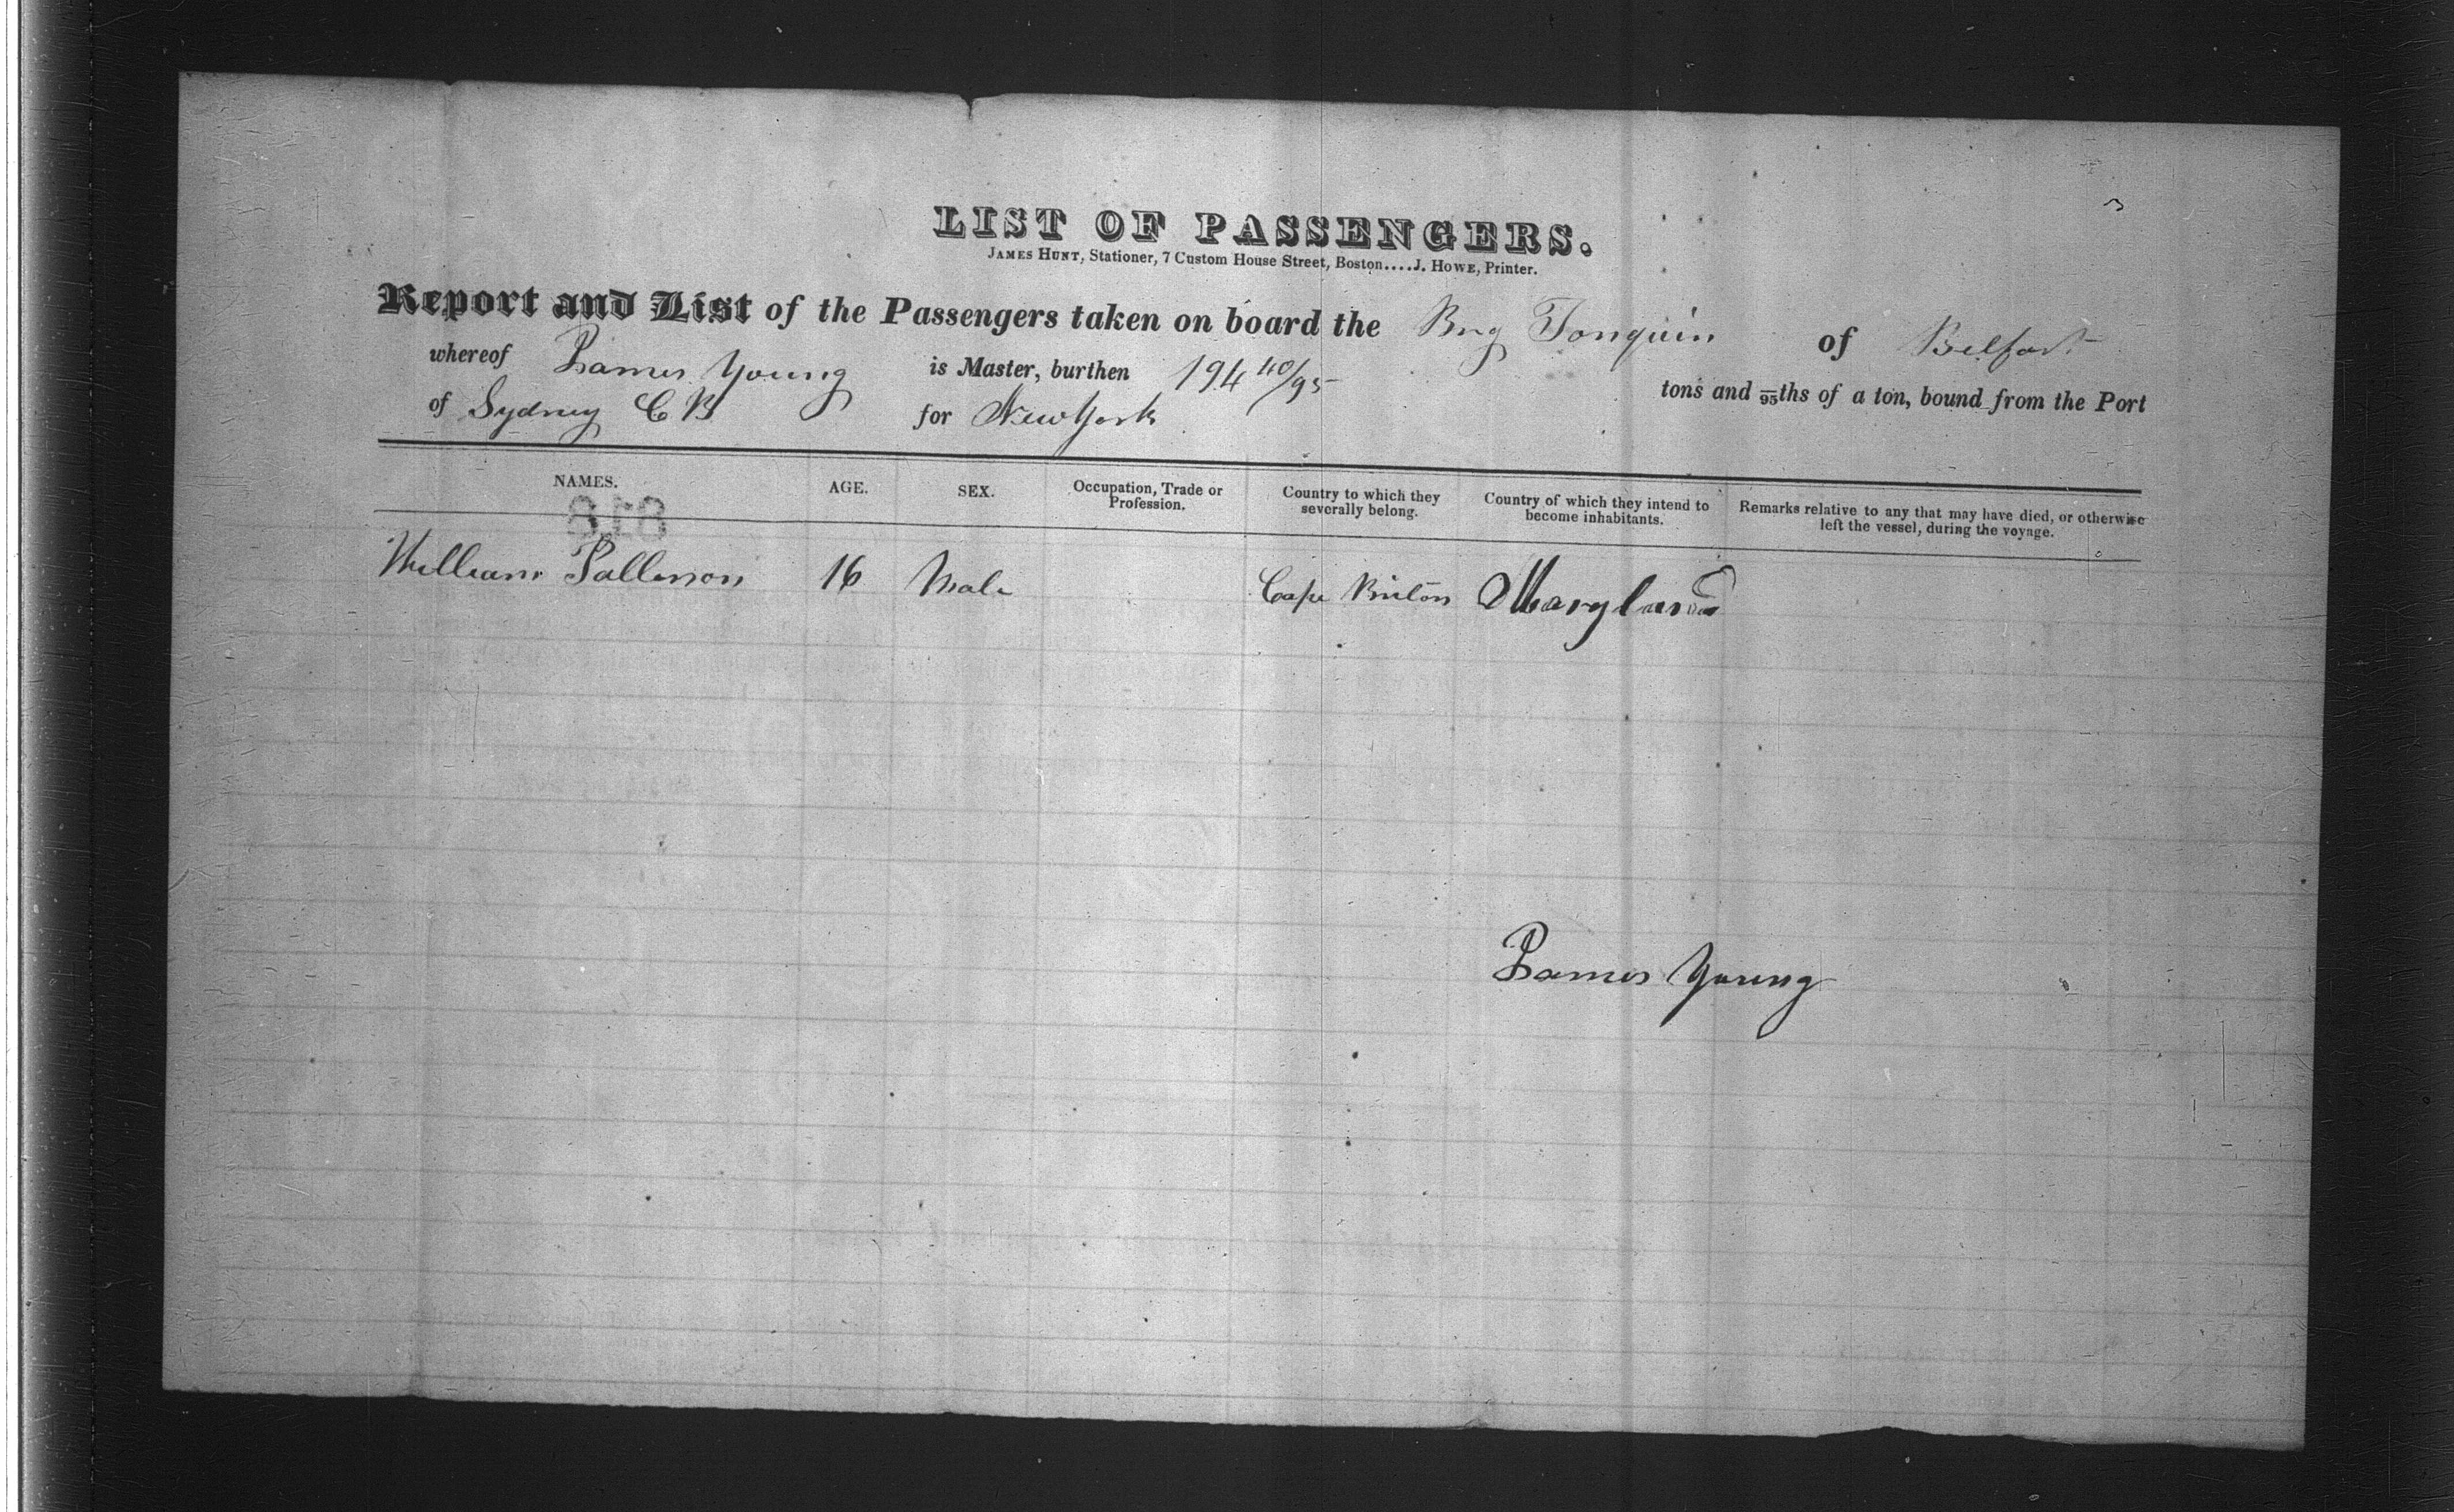 LIST OF PASSENGERS.
JAMES HUNT, Stationer, 7 Custom House Street, Boston....J. HOWE, Printer.
Report and List of the Passengers taken on board the Brig Tonquin of Belfast
whereof James Young is Master, burthen 194 40/95 tons and 95ths of a ton, bound from the Port
of Sydney C B for New York
NAMES. AGE. SEX. Occupation, Trade or Profession. Country to which they severally belong. Country of which they intend to become inhabitants. Remarks relative to any that may have died, or otherwise left the vessel, during the voyage.
William 16 Male Cape Briton Maryland
James Young